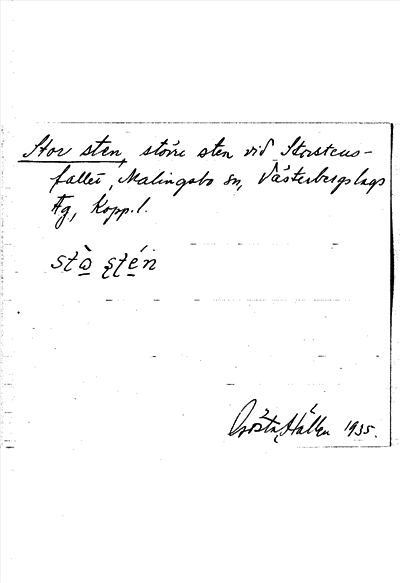 Stor sten, större sten vid Storstens-
fallet, Malingsbo sn, Västerbergslags
Fg, Kopp.l.
Gösta Hållen 1935.